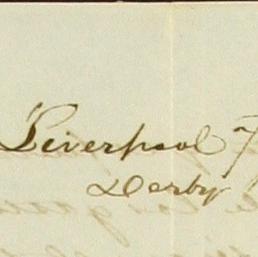 Liverpool
Derby